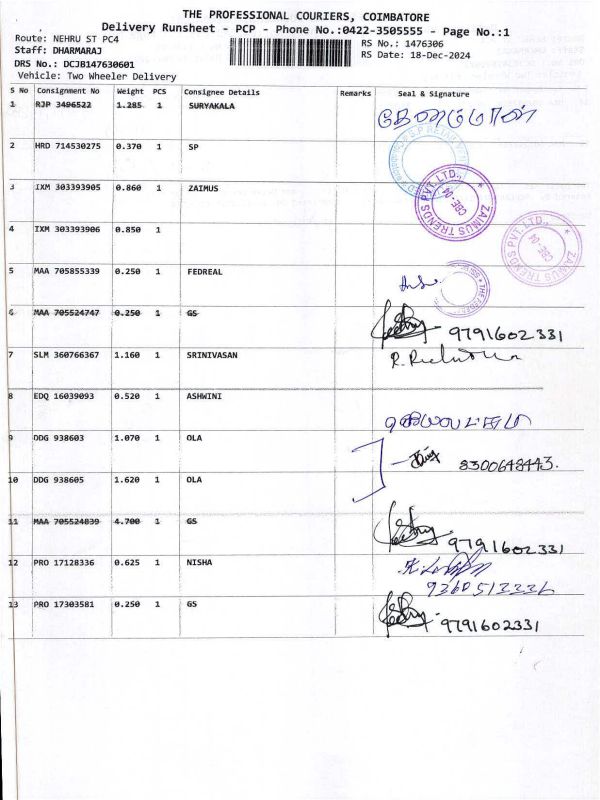 THE PROFESSIONAL COURIERS, COIMBATORE
Delivery Runsheet - PCP - Phone No.:0422-3505555 - Page No.:1
Route: NEHRU ST PC4
RS No.: 1476306
Staff: DHARMARAJ
RS Date: 18-Dec-2024
DRS No.: DCJB147630601
Vehicle: Two Wheeler Delivery
S No Consignment No Weight PCS Consignee Details Remarks Seal & Signature
1 RJP 3496522 1.285 1 SURYAKALA
2 HRD 714530275 0.370 1 SP
3 IXM 303393905 0.860 1 ZAIMUS
ZAIMUS TRENDS PVT. LTD., CBE-04
4 IXM 303393906 0.850 1
ZAIMUS TRENDS PVT. LTD., CBE-04
5 MAA 705855339 0.250 1 FEDREAL
6 MAA 705524747 0.250 1 GS 9791602331
7 SLM 360766367 1.160 1 SRINIVASAN
8 EDQ 16039093 0.520 1 ASHWINI
9 DDG 938603 1.070 1 OLA 8300648443.
10 DDG 938605 1.620 1 OLA
11 MAA 705524839 4.700 1 GS 9791602331
12 PRO 17128336 0.625 1 NISHA
13 PRO 17303581 0.250 1 GS 9791602331